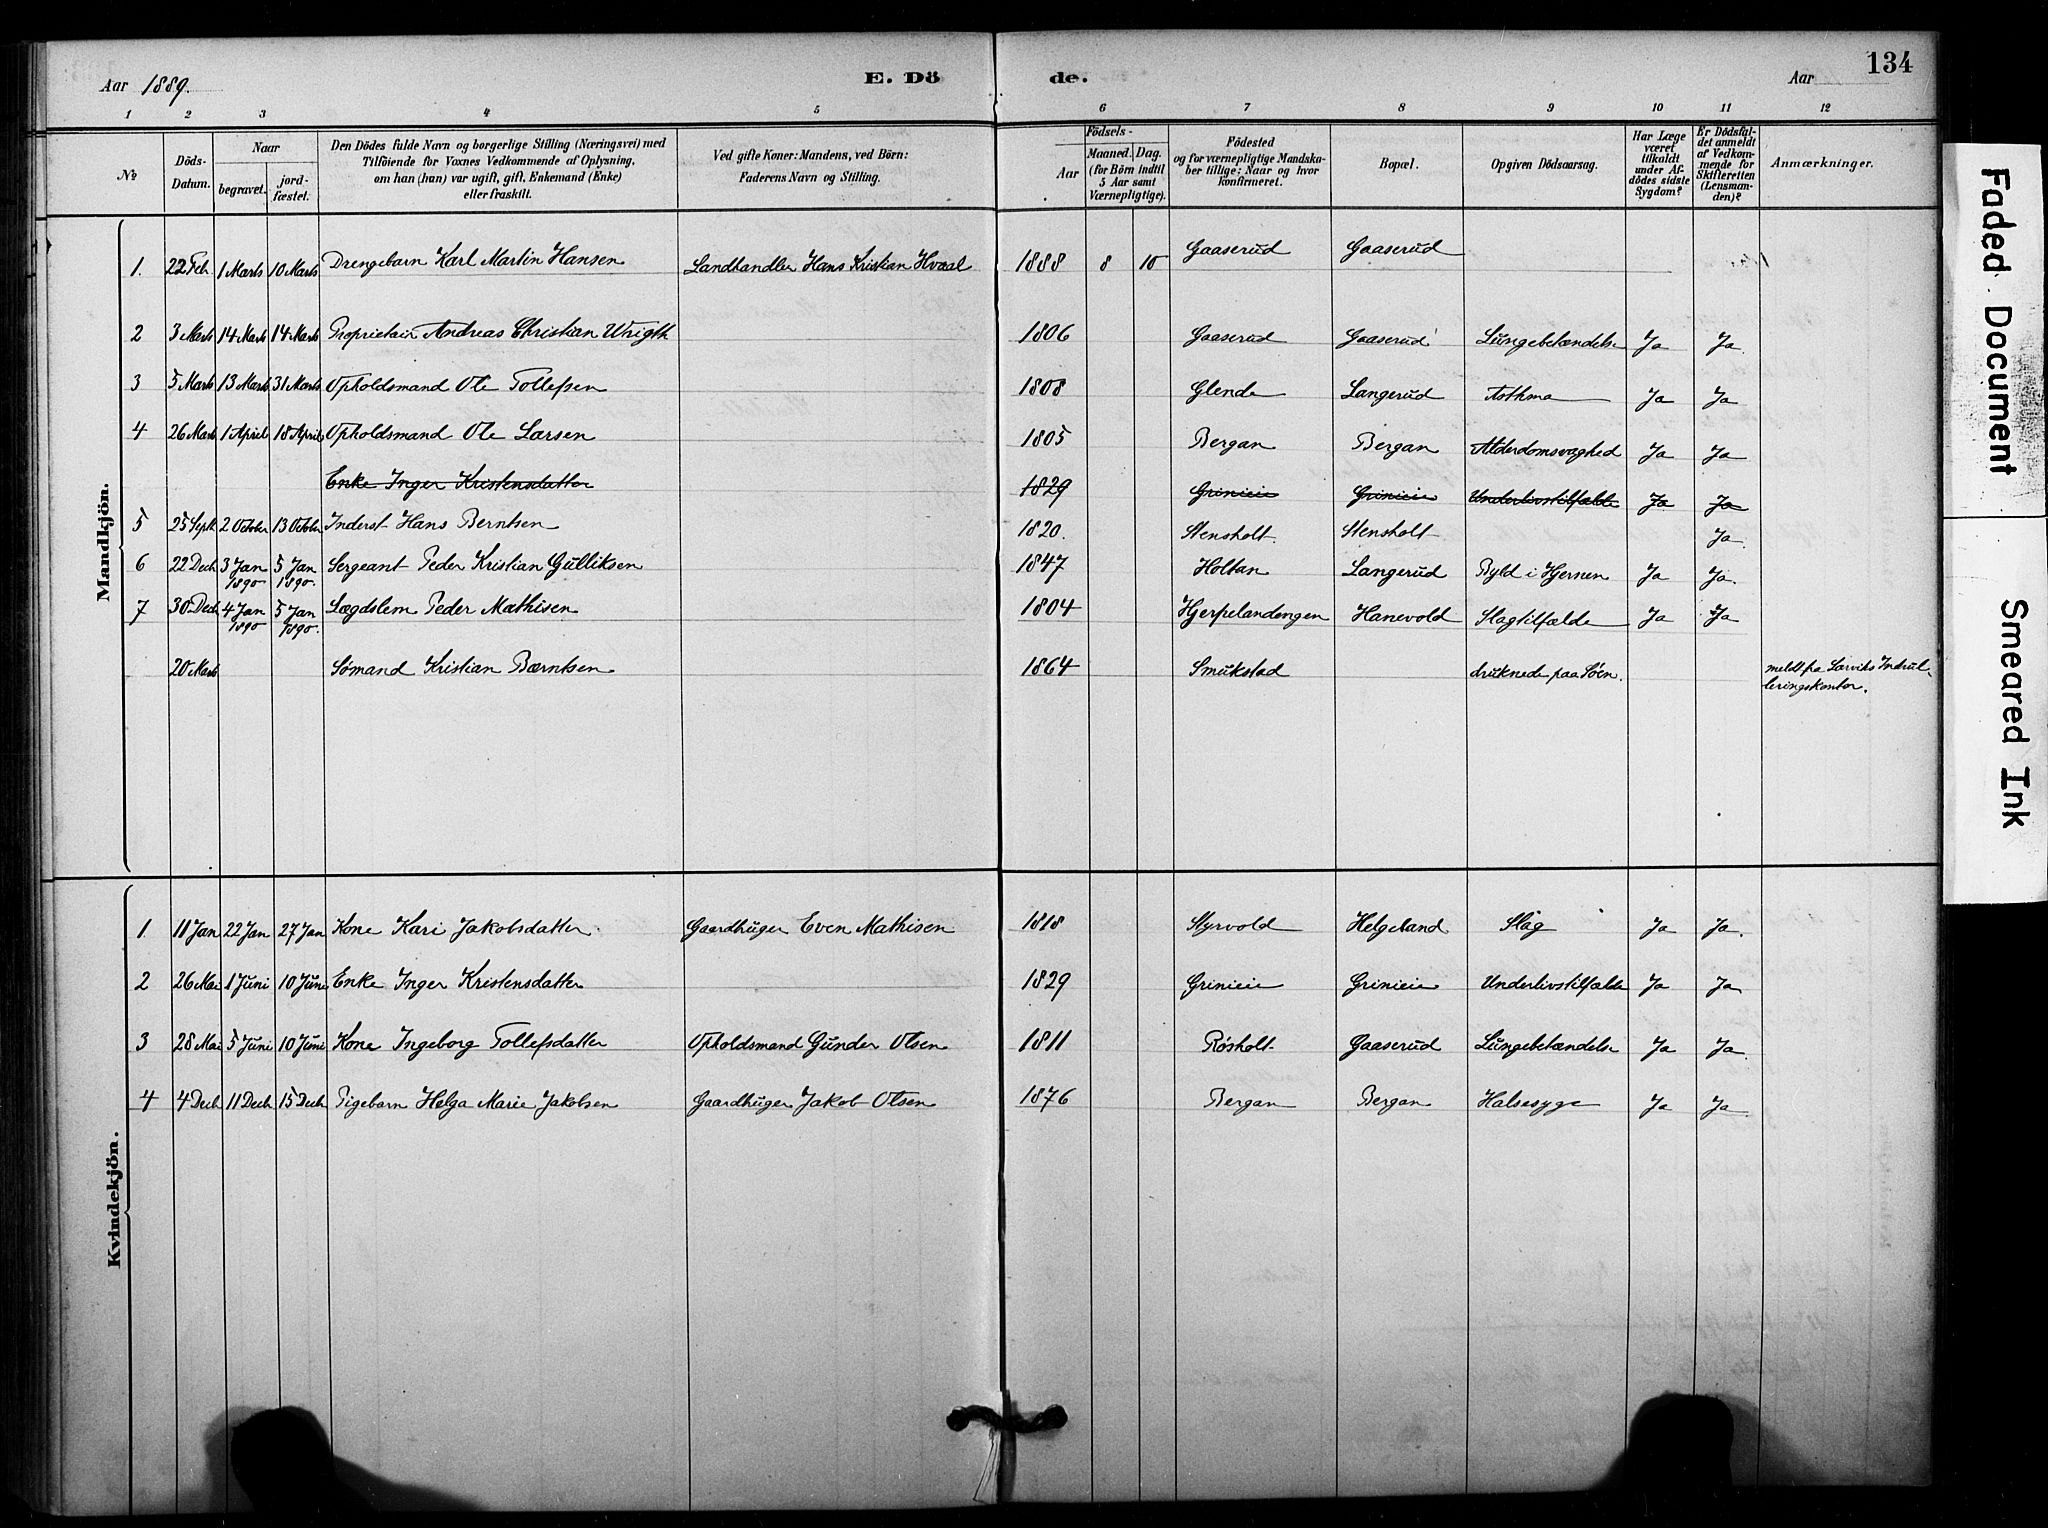 Aar 1889.
E. Dö
de.
Aar
134
1 2 3 4 5 6 7 8 9 10 11 12
No
Döds-Datum.
Naar
begravet.
jordfæstet.
Den Dödes fulde Navn og borgerlige Stilling (Næringsvei) med
Tilföiende for Voxnes Vedkommende af Oplysning,
om han (hun) var ugift, gift, Enkemand (Enke)
eller fraskilt.
Ved gifte Koner: Mandens, ved Börn:
Faderens Navn og Stilling.
Födsels-
Aar
Maaned. Dag.
(for Börn indtil
5 Aar samt
Værnepligtige).
Födested
og for værnepligtige Mandskaber
tillige: Naar og hvor
konfirmeret.
Bopæl.
Opgiven Dödsaarsag.
Har Læge
været
tilkaldt
under Afdödes
sidste
Sygdom?
Er Dödsfaldet
anmeldt
af Vedkommende
for
Skifteretten
(Lensmanden)?
Anmærkninger.
Mandkjön.
1. 22 Feb. 1 Marts 10 Marts Drengebarn Karl Martin Hansen Landhandler Hans Kristian Hvaal 1888 8 10 Gaaserud Gaaserud
2 3 Marts 14 Marts 14 Marts Proprietair Andreas Christian Wrigth 1806 Gaaserud Gaaserud Lungebetændelse Ja Ja.
3 5 Marts 13 Marts 31 Marts Opholdsmand Ole Tollefsen 1808 Glende Langerud Asthma Ja Ja
4 26 Marts 1 April 18 April Opholdsmand Ole Larsen 1805 Bergan Bergan Alderdomsvaghed Ja Ja
Enke Inger Kristensdatter 1829 Grinieie Grinieie Underlivstilfælde Ja Ja
5 25 Sept. 2 October 13 October Inderst Hans Berntsen 1820. Stensholt Stensholt Ja.
6 22 Decb 3 Jan 1890 5 Jan 1890 Sergeant Peder Kristian Gulliksen 1847 Holtan Langerud Byld i Hjernen Ja Ja.
7 30 Decb 4 Jan 1890 5 Jan 1890. Lægdslem Peder Mathisen 1804 Hjerpelandengen Hanevold Slagtilfælde Ja Ja
20 Marts Sømand Kristian Bærntsen 1864 Smukstad druknede paa Søen. meldt fra Larviks Indrul-
leringskontor.
Kvindekjön.
1. 11 Jan 22 Jan 27 Jan Kone Kari Jakobsdatter Gaardbruger Even Mathisen 1818 Styrvold Helgeland Slag Ja Ja.
2 26 Mai 1 Juni 10 Juni Enke Inger Kristensdatter 1829 Grinieie Grinieie Underlivstilfælde Ja Ja
3 28 Mai 5 Juni 10 Juni Kone Ingeborg Tollefsdatter Opholdsmand Gunder Olsen 1811 Røsholt Gaaserud Lungebetændelse Ja Ja.
4 4 Decb 11 Decb 15 Decb Pigebarn Helga Marie Jakobsen Gaardbruger Jakob Olsen 1876 Bergan Bergan Halsesyge Ja Ja.
Faded Document
Smeared Ink